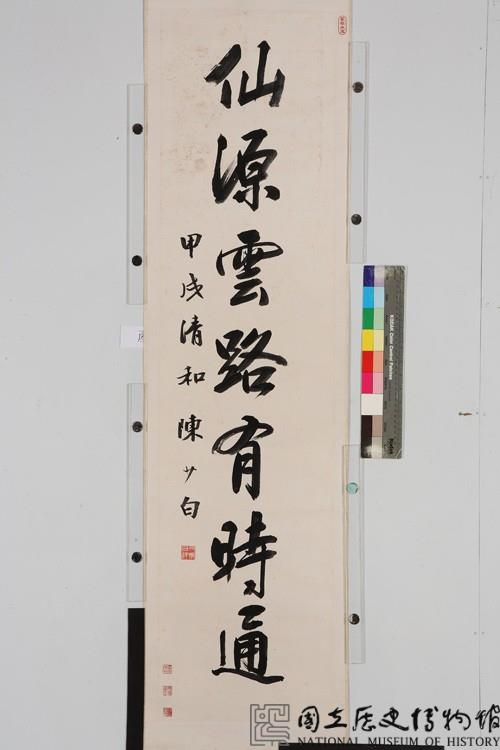 仙源雲路有時通
甲戌清和陳少白
國立歷史博物館
NATIONAL MUSEUM OF HISTORY